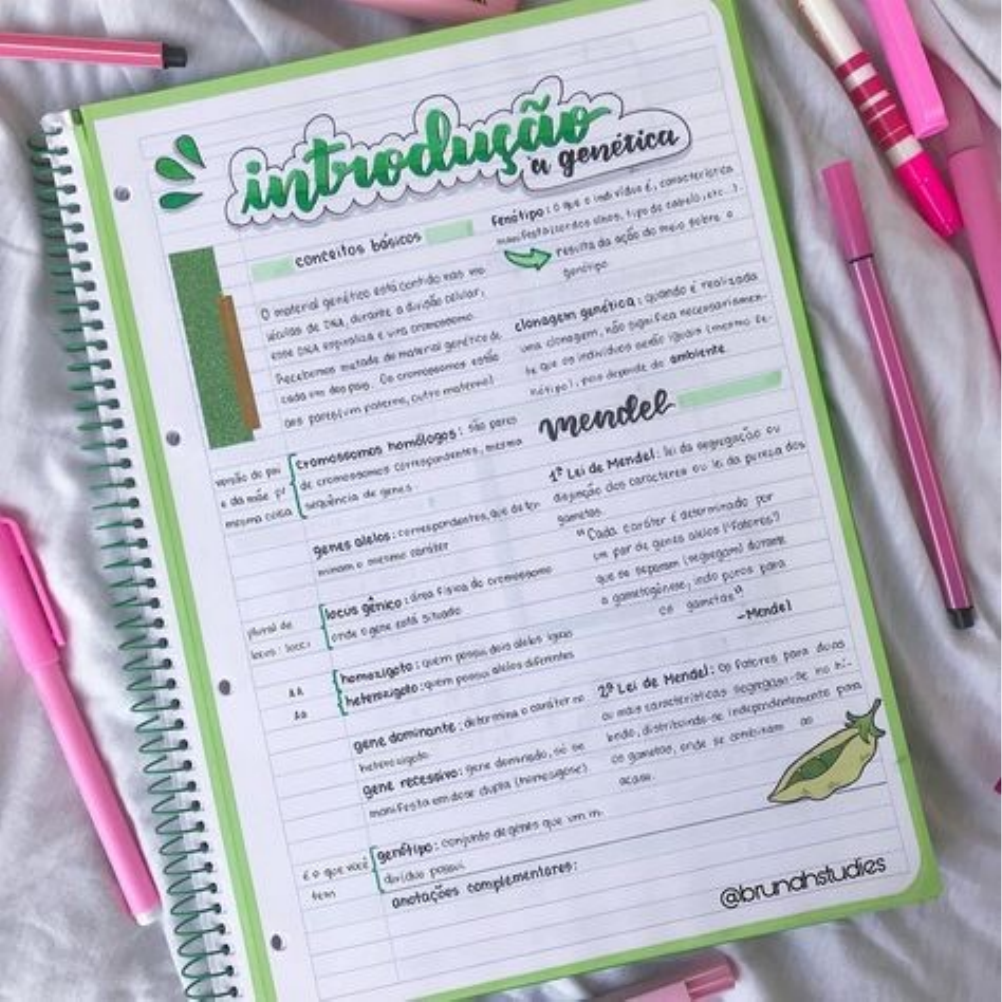 introdução
a genética
conceitos básicos
O material genético está contido nas mo
léculas de DNA, durante a divisão celular,
esse DNA espiraliza e vira cromossomo.
Recebemos metade do material genético de
cada um dos pais. Os cromossomos estão
aos pares (um paterno, outro materno)
versão do pai
e da mãe p/
mesma coisa
cromossomos homólogos: são pares
de cromossomos correspondentes, mesma
sequência de genes.
genes alelos: correspondentes, que deter
minam o mesmo caráter
plural de
locus: loci
locus gênico: área física do cromossomo
onde o gene está situado
AA
Aa
homozigoto: quem possui dois alelos iguais
heterozigoto: quem possui alelos diferentes
gene dominante: determina o caráter no
heterozigoto.
gene recessivo: gene dominado, só se
manifesta em dose dupla (homozigose)
é o que você
tem
genótipo: conjunto de genes que um in-
divíduo possui.
anotações complementares:
fenótipo: o que o indivíduo é, característica
manifesta (cor dos olhos, tipo de cabelo, etc...).
resulta da ação do meio sobre o
genótipo
clonagem genética: quando é realizada
uma clonagem, não significa necessariamen-
te que os indivíduos serão iguais (mesmo fe-
nótipo), pois depende do ambiente.
mendel
1ª Lei de Mendel: lei da segregação ou
disjunção dos caracteres ou lei da pureza dos
gametas.
"Cada caráter é determinado por
um par de genes alelos ("fatores")
que se separam (segregam) durante
a gametogênese, indo puros para
os gametas"
-Mendel
2ª Lei de Mendel: Os fatores para duas
ou mais características segregam-se no hí-
brido, distribuindo-se independentemente para
os gametas, onde se combinam ao
acaso.
@brunahstudies